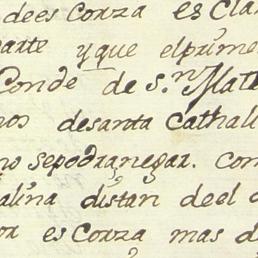 dees Corza es Cla
parte y que elprime
Conde de s.n Mate
eos desanta Cathali
no sepodra negar. Con
alina distan deel c
or es Corza mas d